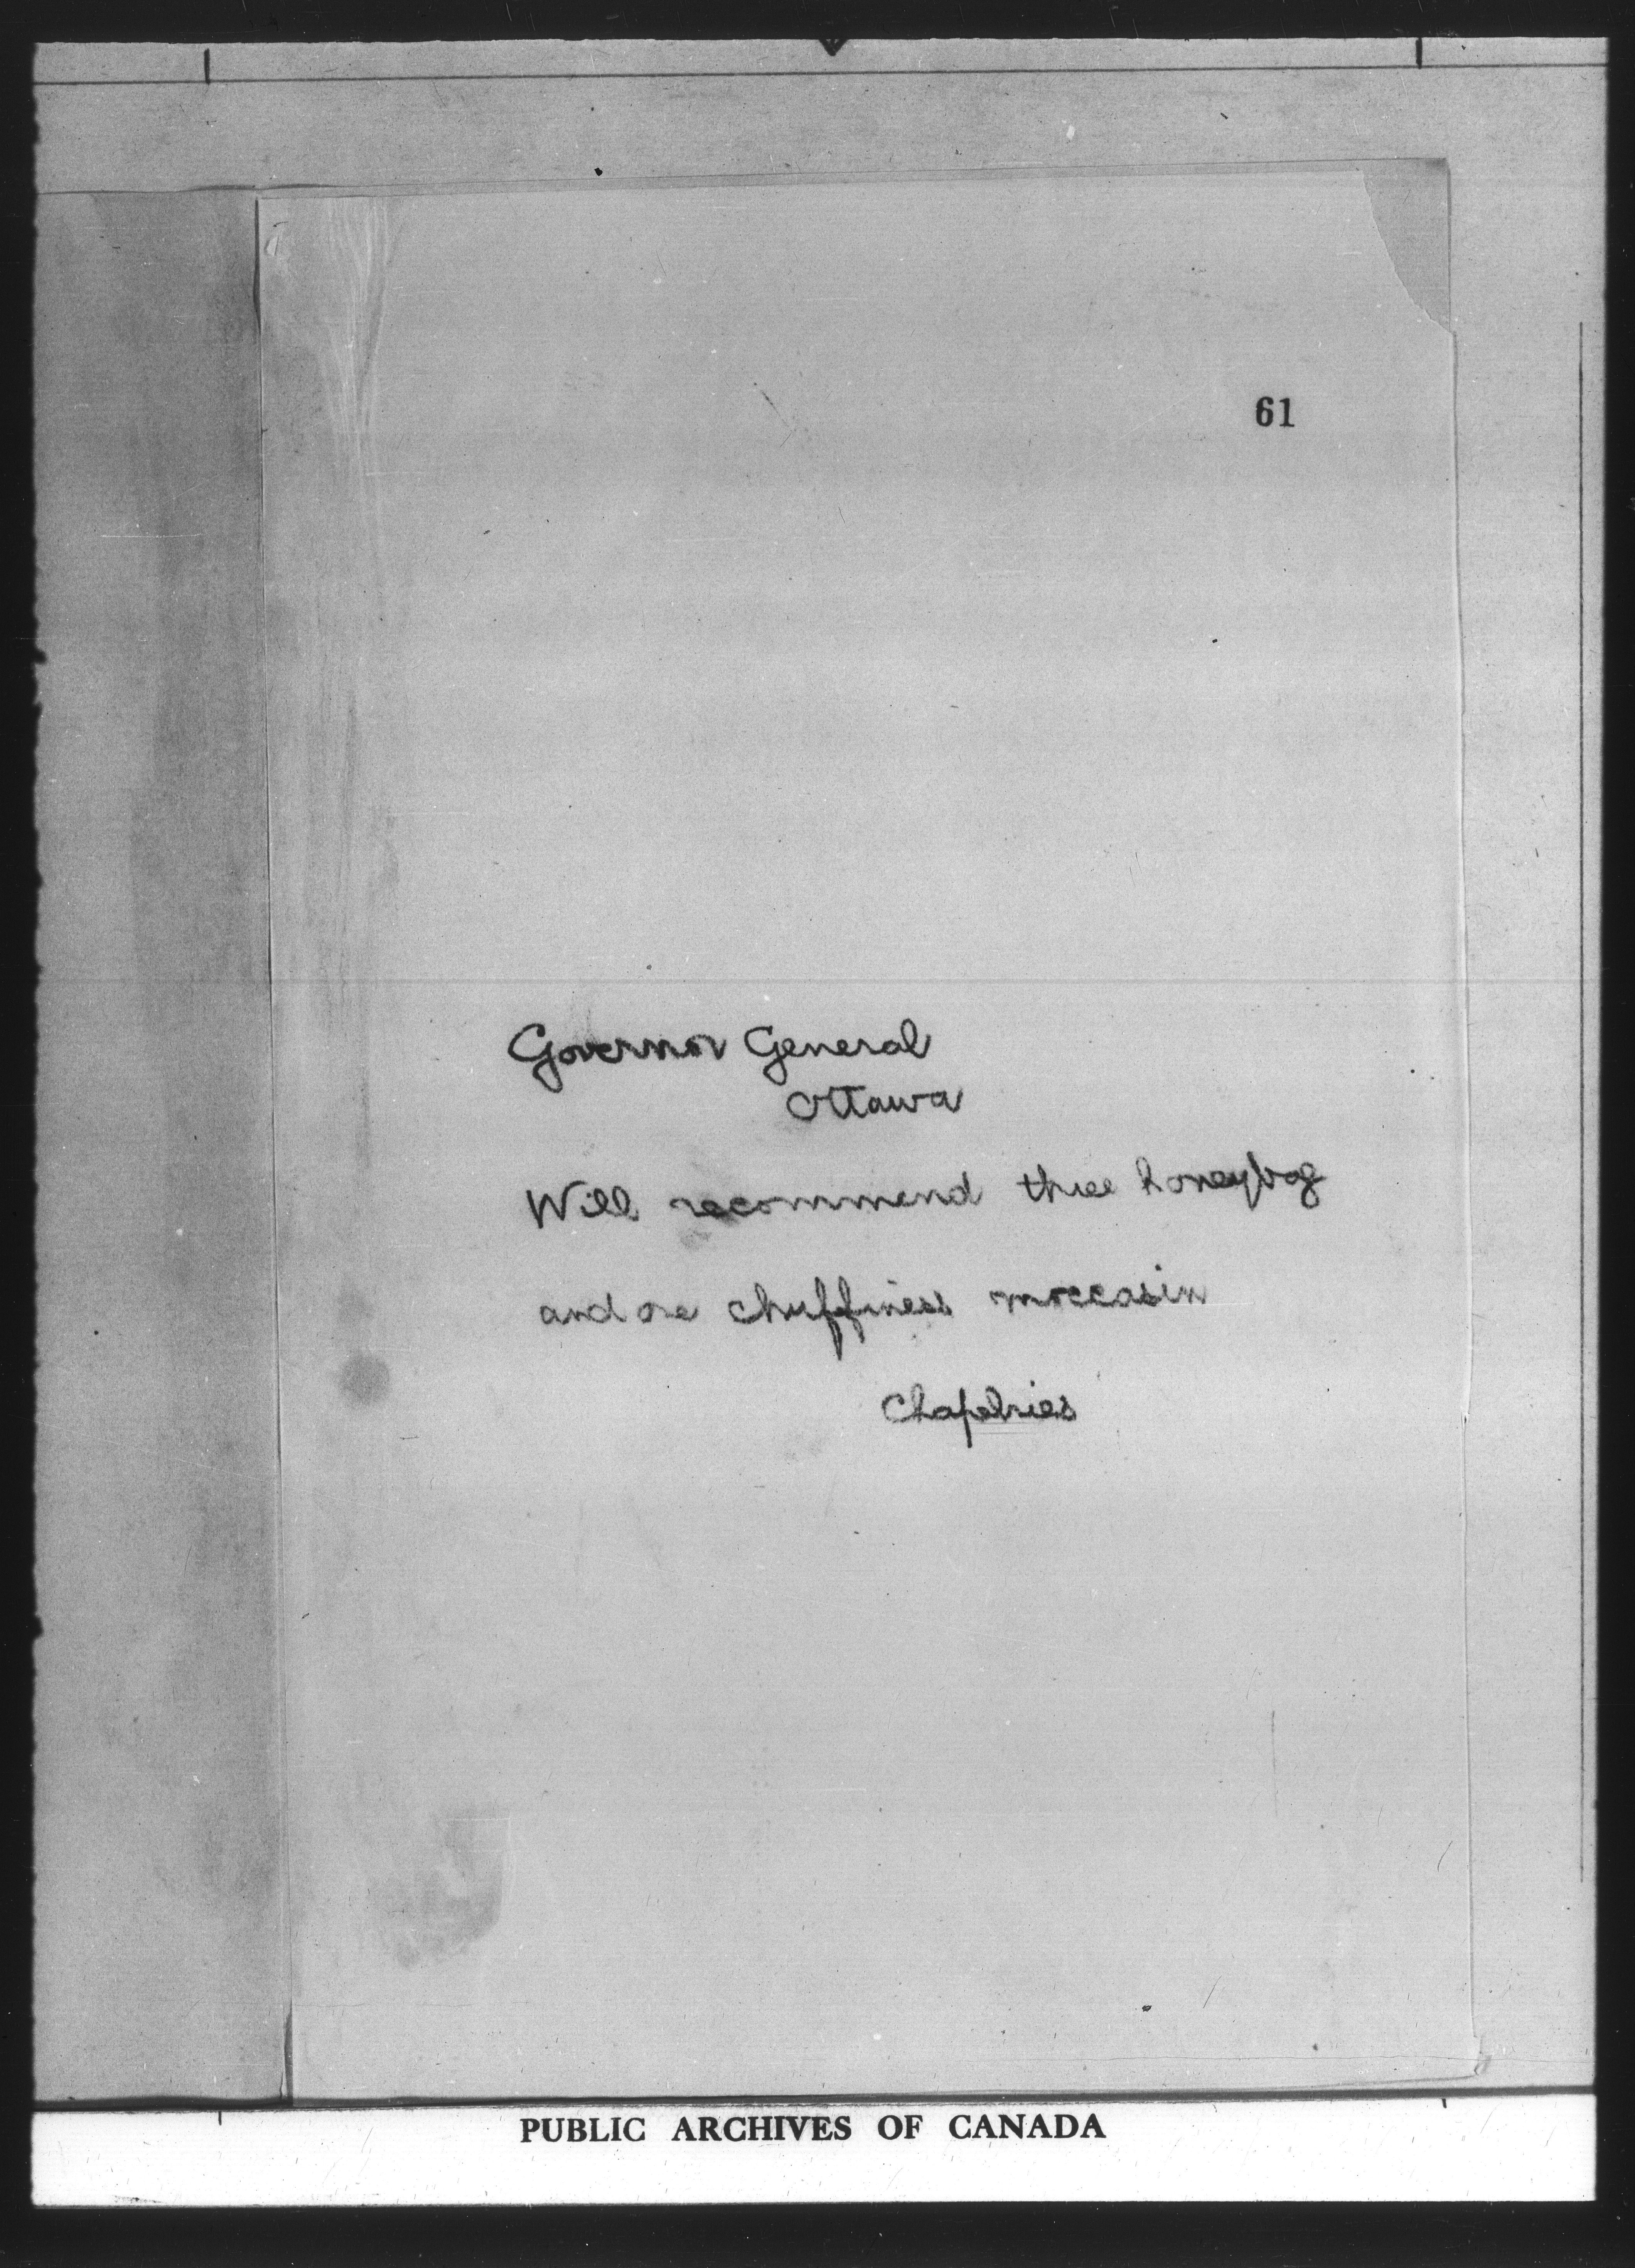 61
Governor General
Ottawa
Will recommend three honeybog
and one chuffiness moccasin
Chapelries
PUBLIC ARCHIVES OF CANADA